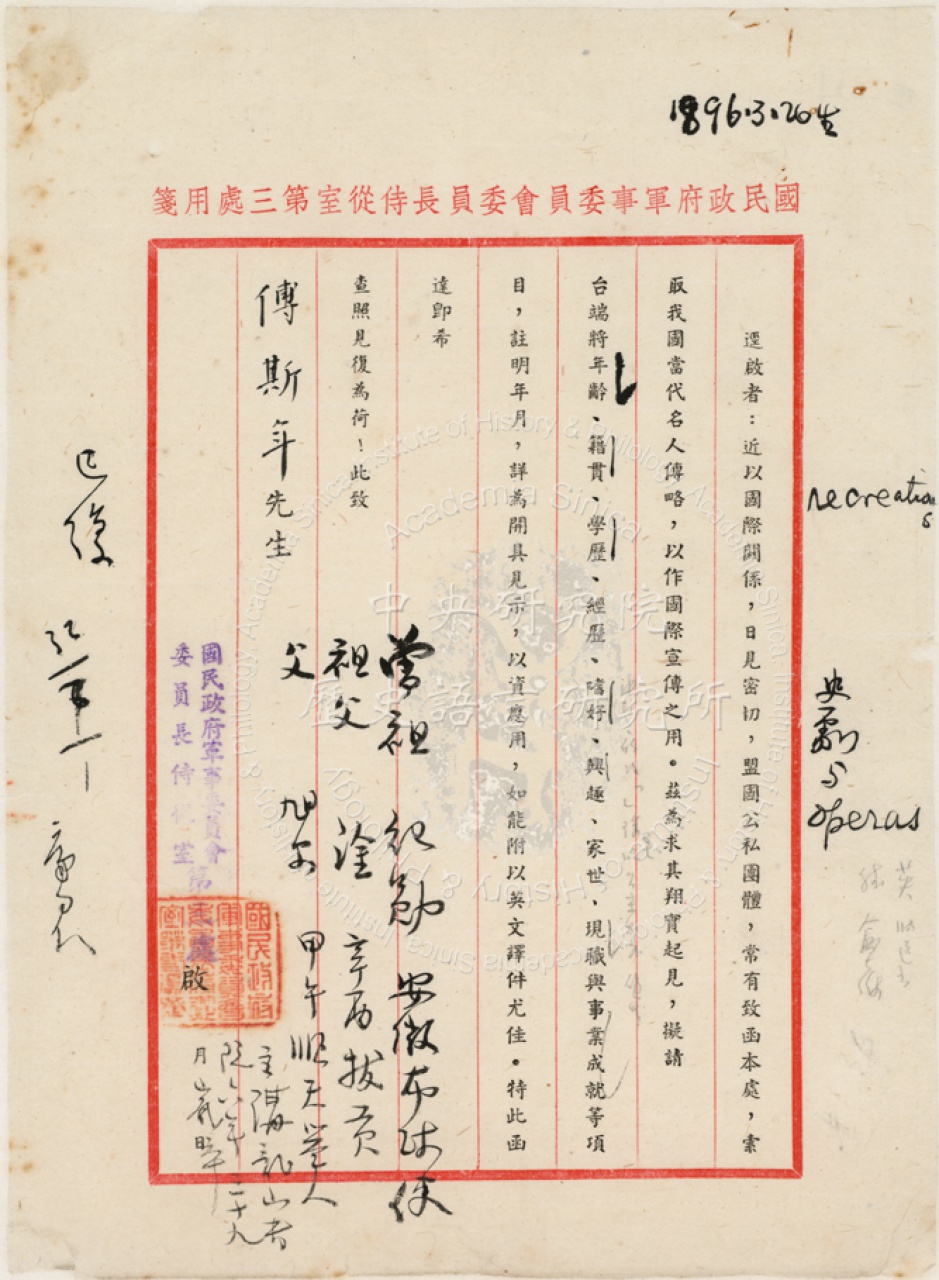 1896.3.26生
國民政府軍事委員會委員長侍從室第三處用箋
逕啟者：近以國際關係，日見密切，盟國公私團體，常有致函本處，索
取我國當代名人傳略，以作國際宣傳之用。茲為求其翔實起見，擬請
台端將年齡、籍貫、學歷、經歷、嗜好、興趣、家世、現職與事業成就等項
目，註明年月，詳為開具見示，以資應用，如能附以英文譯件尤佳。特此函
達卽希
查照見復為荷！此致
傅斯年先生
國民政府軍事委員會
委員長侍從室第三處
啟
recreations
史劇与
operas
曾祖 繼勛 安徽布政使
祖父 淦 辛酉拔貢
父 旭安 甲午順天舉人
主講龍山書
院六年 三十九
已復
中央研究院
歷史語言研究所
Academia Sinica
Institute of History & Philology